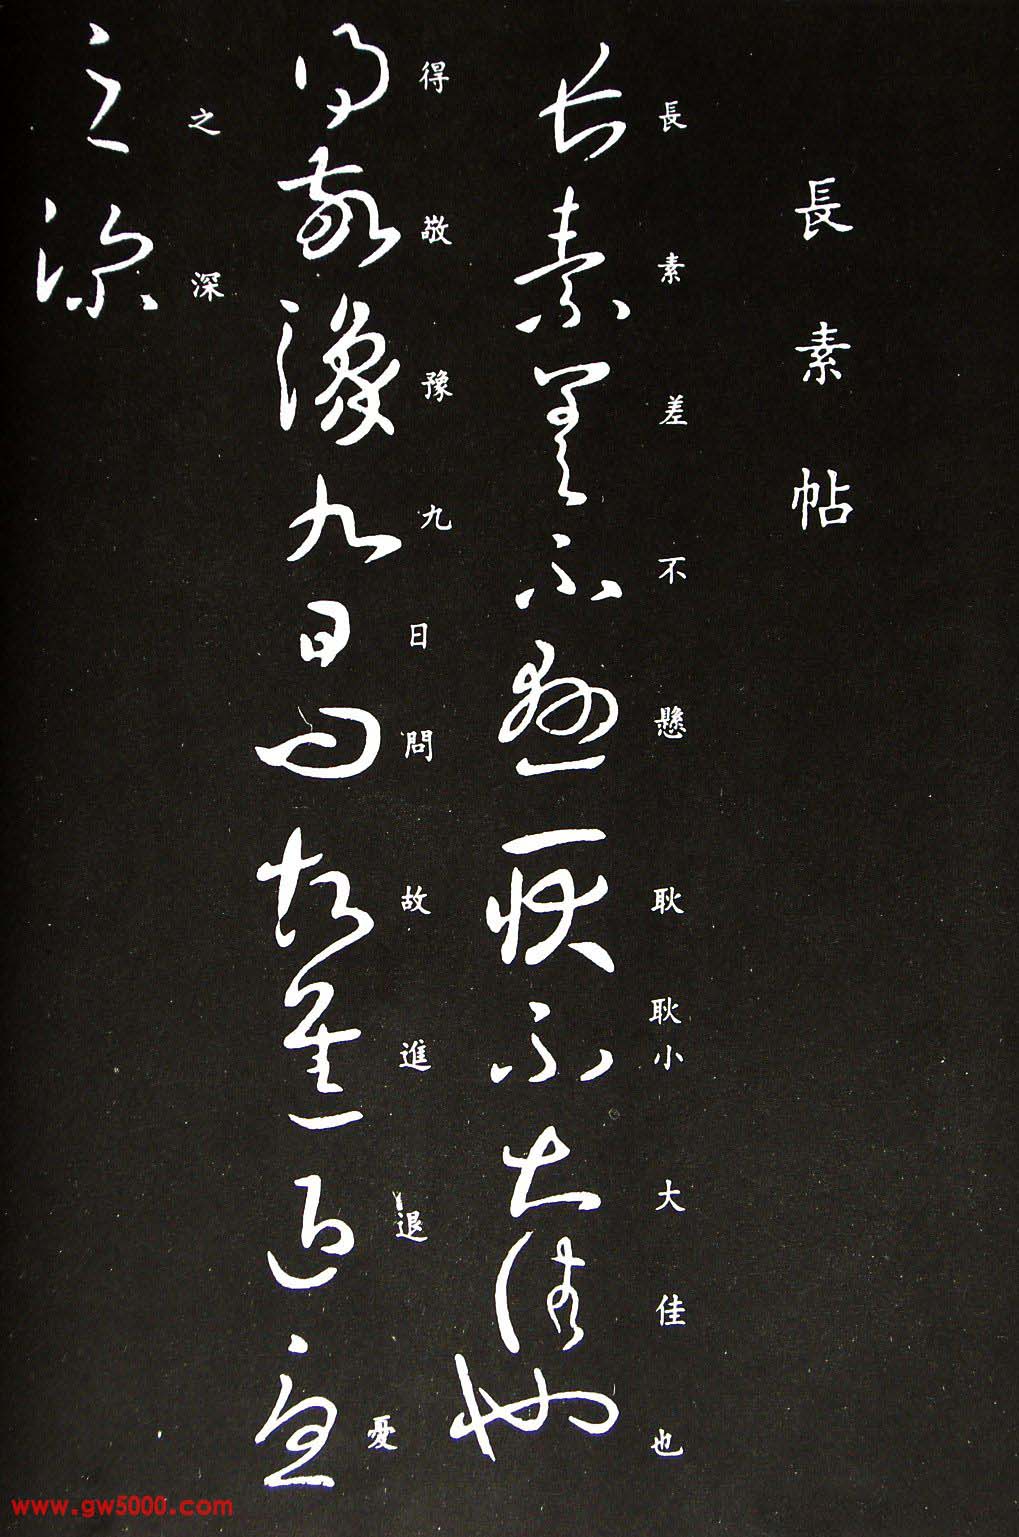 長素帖
長素差不懸耿耿小大佳也
得敬豫九日問故進退憂
之深
www.gw5000.com